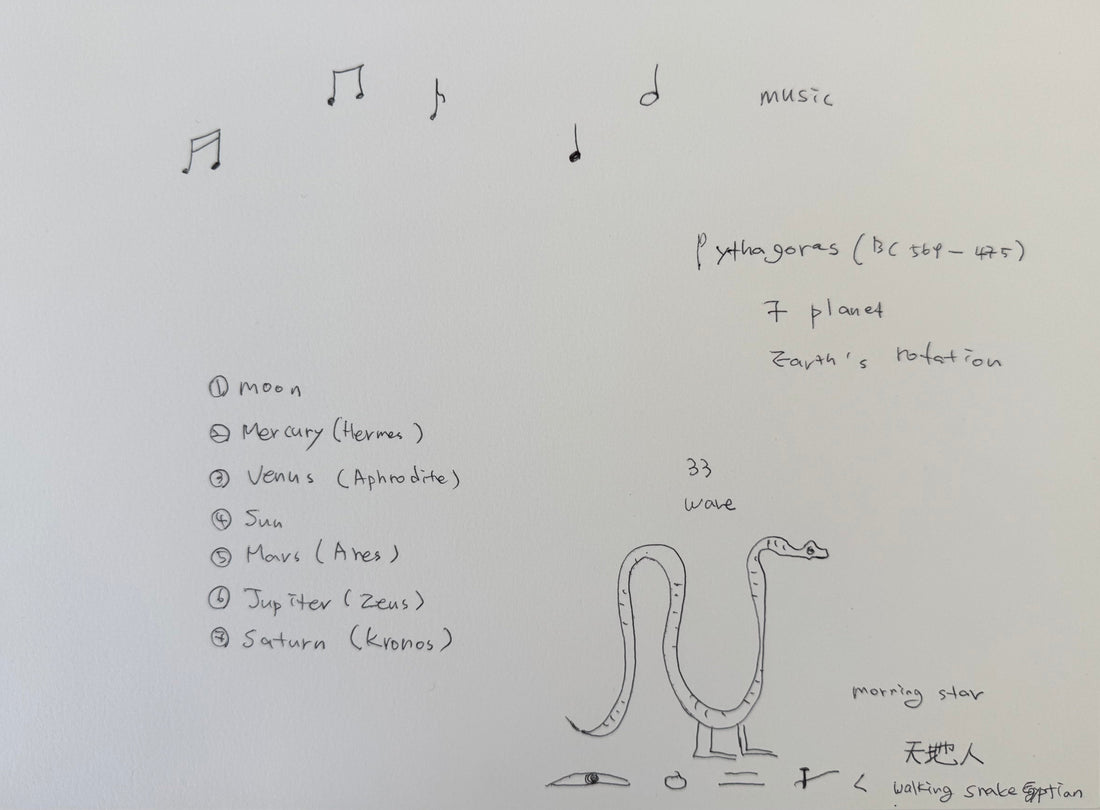 music
Pythagoras (BC 569 - 475)
7 planet
Earth's rotation
① moon
② Mercury (Hermes)
③ Venus (Aphrodite)
④ Sun
⑤ Mars (Ares)
⑥ Jupiter (Zeus)
⑦ Saturn (Kronos)
33
wave
morning star
天地人
walking snake